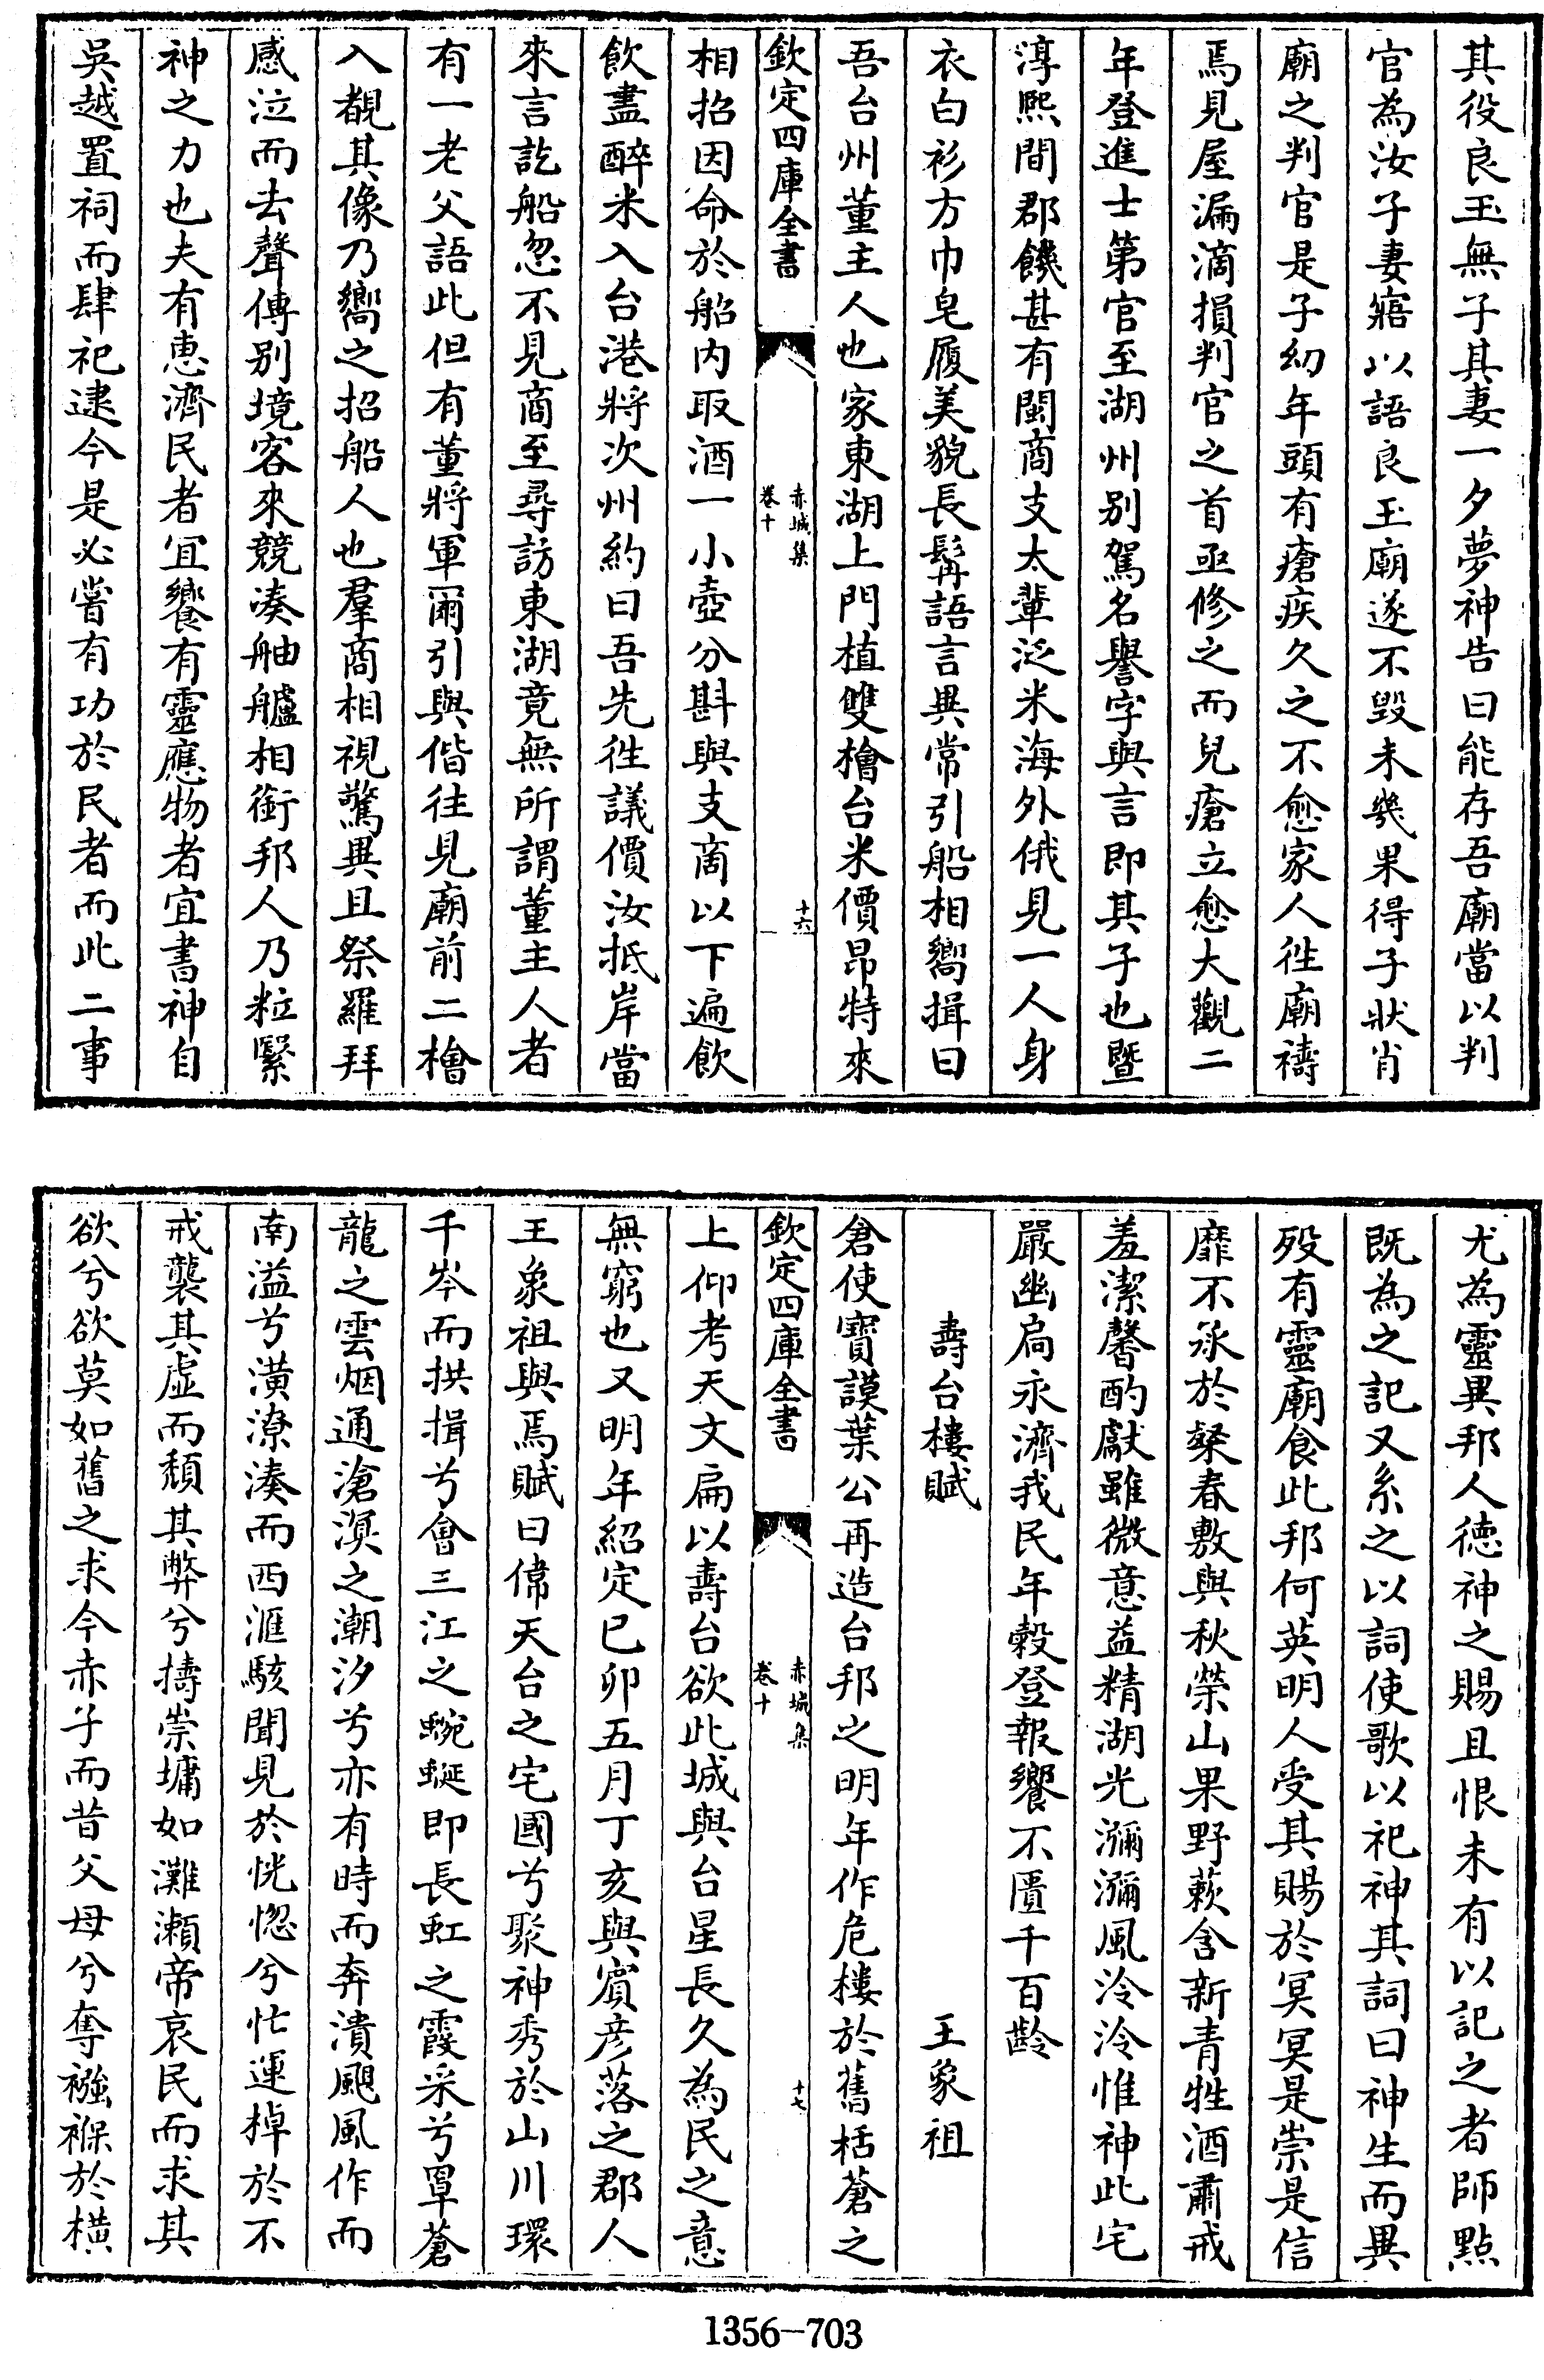 其役良玉無子其妻一夕夢神告曰能存吾廟當以判
官為汝子妻寤以語良玉廟遂不毀未㡬果得子狀肖
廟之判官是子幼年頭有瘡疾久之不愈家人徃廟禱
焉見屋漏滴損判官之首亟修之而兒瘡立愈大觀二
年登進士第官至湖州别駕名譽字與言即其子也暨
淳熙間郡饑甚有閩商支太輩泛米海外俄見一人身
衣白衫方巾皂履美貌長髯語言異常引船相嚮揖曰
吾台州董主人也家東湖上門植雙檜台米價昂特來
欽定四庫全書
赤城集
卷十
十六
相招因命於船内取酒一小壺分斟與支商以下遍飲
飲盡醉米入台港將次州約曰吾先徃議價汝抵岸當
來言訖船忽不見商至尋訪東湖竟無所謂董主人者
有一老父語此但有董將軍爾引與偕往見廟前二檜
入覩其像乃嚮之招船人也羣商相視驚異且祭羅拜
感泣而去聲傳别境客來競湊舳艫相銜邦人乃粒緊
神之力也夫有惠濟民者宜饗有靈應物者宜書神自
吳越置祠而肆祀逮今是必嘗有功於民者而此二事
尤為靈異邦人德神之賜且恨未有以記之者師點
既為之記又系之以詞使歌以祀神其詞曰神生而異
殁有靈廟食此邦何英明人受其賜於冥冥是崇是信
靡不承於粲春敷與秋榮山果野蔌含新青牲酒肅戒
羞潔馨酌獻雖微意益精湖光瀰瀰風泠泠惟神此宅
嚴幽扃永濟我民年穀登報饗不匱千百齡
壽台樓賦　王象祖
倉使寶謨葉公再造台邦之明年作危樓於舊栝蒼之
欽定四庫全書
赤城集
卷十
十七
上仰考天文扁以壽台欲此城與台星長久為民之意
無窮也又明年紹定已卯五月丁亥與賓彦落之郡人
王象祖與焉賦曰偉天台之宅國兮聚神秀於山川環
千岑而拱揖兮會三江之蜿蜒即長虹之霞采兮罩蒼
龍之雲烟通滄溟之潮汐兮亦有時而奔潰颶風作而
南溢兮潢潦湊而西滙駭聞見於恍惚兮忙運棹於不
戒襲其虛而頹其弊兮擣崇墉如灘瀬帝哀民而求其
欲兮欲莫如舊之求今赤子而昔父母兮奪襁褓於橫
1356—703